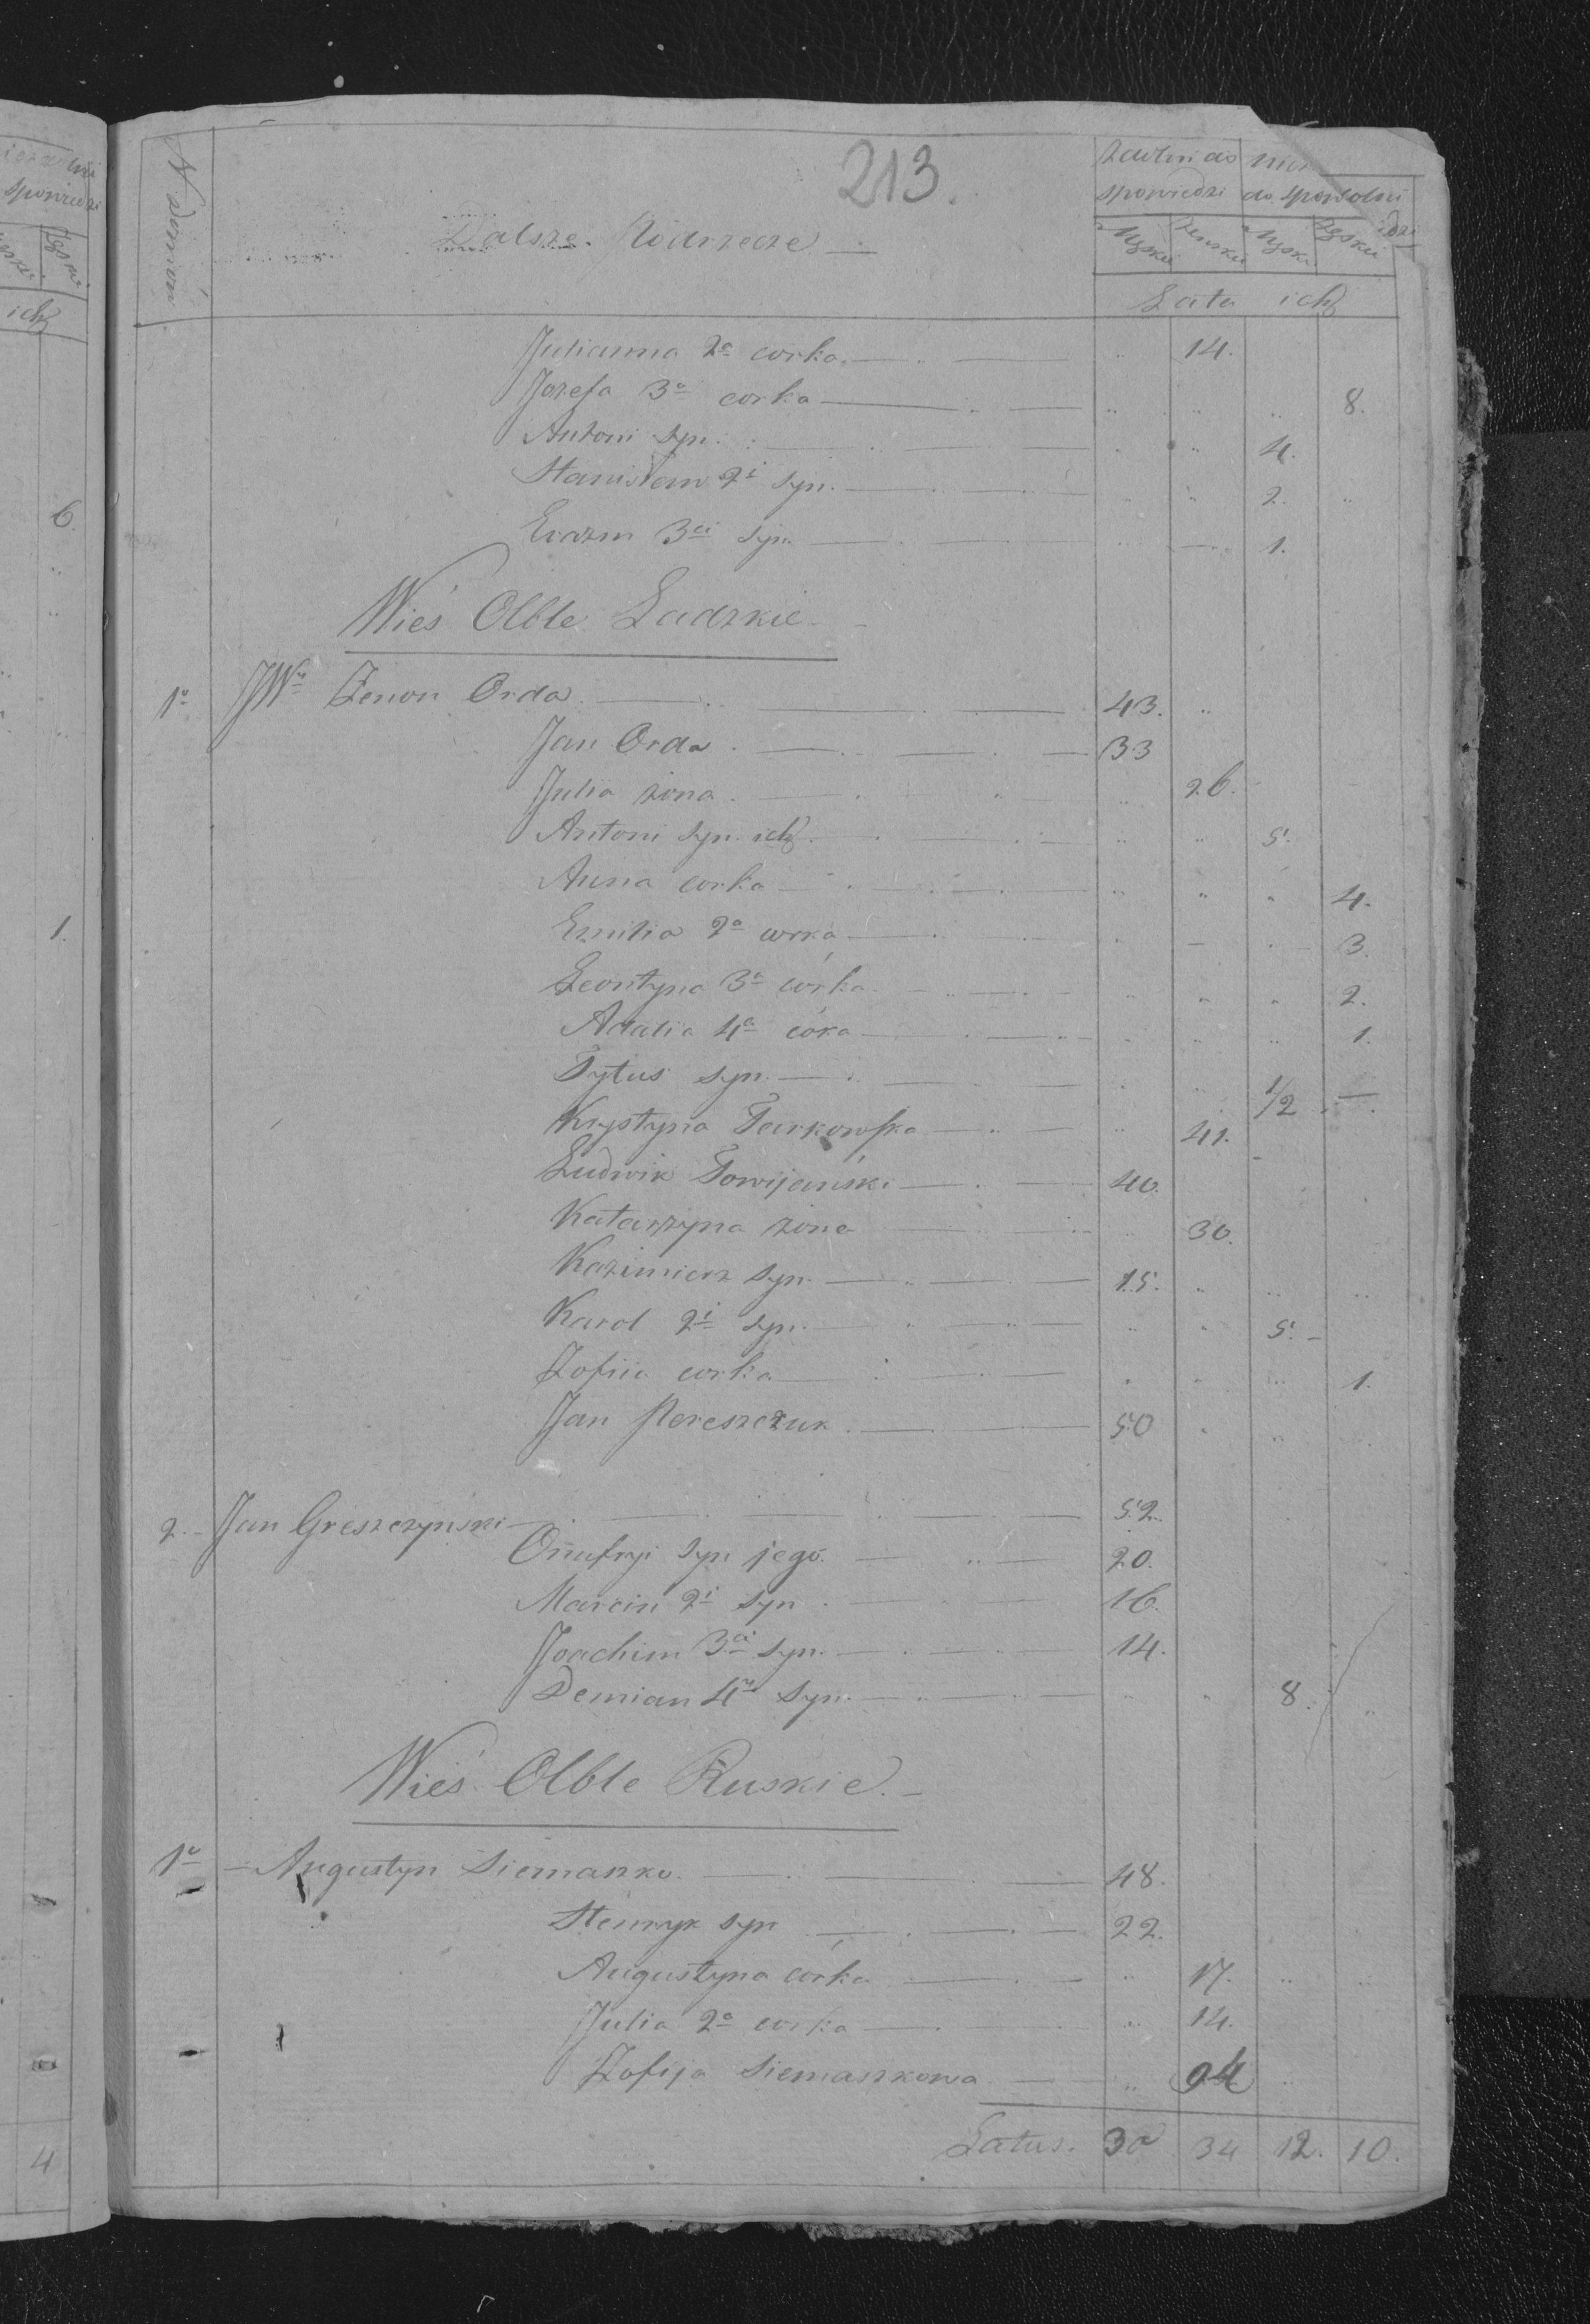 213.
N Domów
Dalsze
Zdolni do
spowiedzi do spowiedzi
Męski Żeński Męski Żeński
Lata ich
Julianna 2a corka 14.
Jozefa 3a corka 8.
Antoni syn 4.
Stanisław 2i syn. 2.
Erazm 3ci syn. 1.
Wieś Olble Ladzkie
1o JWny Zenon Orda 43.
Jan Orda 33
Julia żona 26.
Antoni syn ich 5.
Anna corka 4.
Emilia 2a corka 3.
Leontyna 3a córka 2.
Adalia 4a córa 1.
Tytus syn 1/2
Krystyna Tarkowska 41.
Ludwik Towijański 40.
Katarzyna żona 30.
Kazimierz syn 15.
Karol 2i syn 5.
Zofiia corka 1.
Jan Pereszczuk 50
2. Jan Greszczyński 52.
Onufryi syn jego 20.
Marcin 2i syn 16.
Joachim 3ci syn. 14.
Demian 4ty syn. 8.
Wieś Olble Ruskie.
1o Augustyn Siemaszko 48.
Henryk syn 22.
Augustyna córka 17.
Julia 2a corka 14.
Zofija Siemaszkowa 94
Latus. 30 34 12. 10.
spowiedzi
ich
6.
1.
4